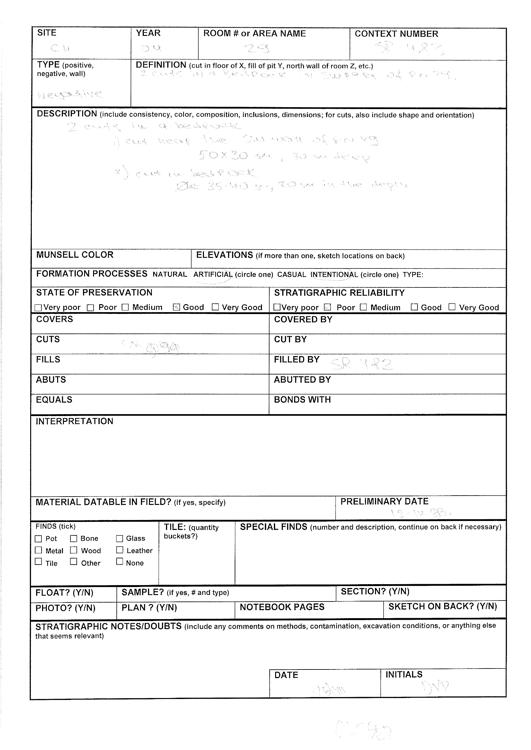 SITE YEAR ROOM # or AREA NAME CONTEXT NUMBER
29 SP
TYPE (positive, negative, wall) DEFINITION (cut in floor of X, fill of pit Y, north wall of room Z, etc.)
2 cuts in a bedrock
negative
DESCRIPTION (include consistency, color, composition, inclusions, dimensions; for cuts, also include shape and orientation)
2 cuts in a bedrock
1) cut near the SW wall of
50x30 cm, 30 cm deep
2) cut in bedrock
35-40 cm, 20 cm in the depth
MUNSELL COLOR ELEVATIONS (if more than one, sketch locations on back)
FORMATION PROCESSES NATURAL ARTIFICIAL (circle one) CASUAL INTENTIONAL (circle one) TYPE:
STATE OF PRESERVATION STRATIGRAPHIC RELIABILITY
Very poor Poor Medium Good Very Good Very poor Poor Medium Good Very Good
COVERS COVERED BY
CUTS CUT BY
FILLS FILLED BY
ABUTS ABUTTED BY
EQUALS BONDS WITH
INTERPRETATION
MATERIAL DATABLE IN FIELD? (if yes, specify) PRELIMINARY DATE
FINDS (tick) TILE: (quantity buckets?) SPECIAL FINDS (number and description, continue on back if necessary)
Pot Bone Glass
Metal Wood Leather
Tile Other None
FLOAT? (Y/N) SAMPLE? (if yes, # and type) SECTION? (Y/N)
PHOTO? (Y/N) PLAN ? (Y/N) NOTEBOOK PAGES SKETCH ON BACK? (Y/N)
STRATIGRAPHIC NOTES/DOUBTS (include any comments on methods, contamination, excavation conditions, or anything else
that seems relevant)
DATE INITIALS